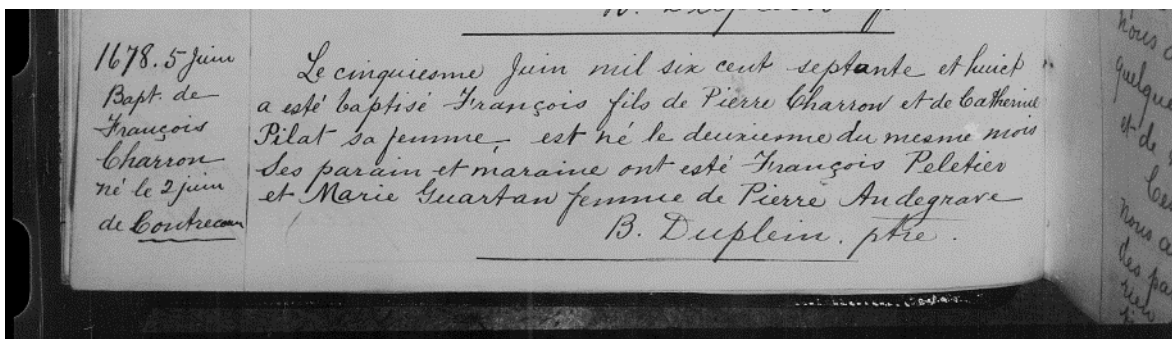 1678. 5 Juin
Bapt. de
François
Charron
né le 2 juin
de Contrecoeur
Le cinquiesme Juin mil six cent septante et huict
a esté baptisé François fils de Pierre Charron et de Catherine
Pilat sa femme est né le deuxiesme du mesme mois
Ses parain et maraine ont esté François Peletier
et Marie Guartan femme de Pierre Andegrave
B. Duplein. ptre.
nous
quelque
et de
nous
des pa